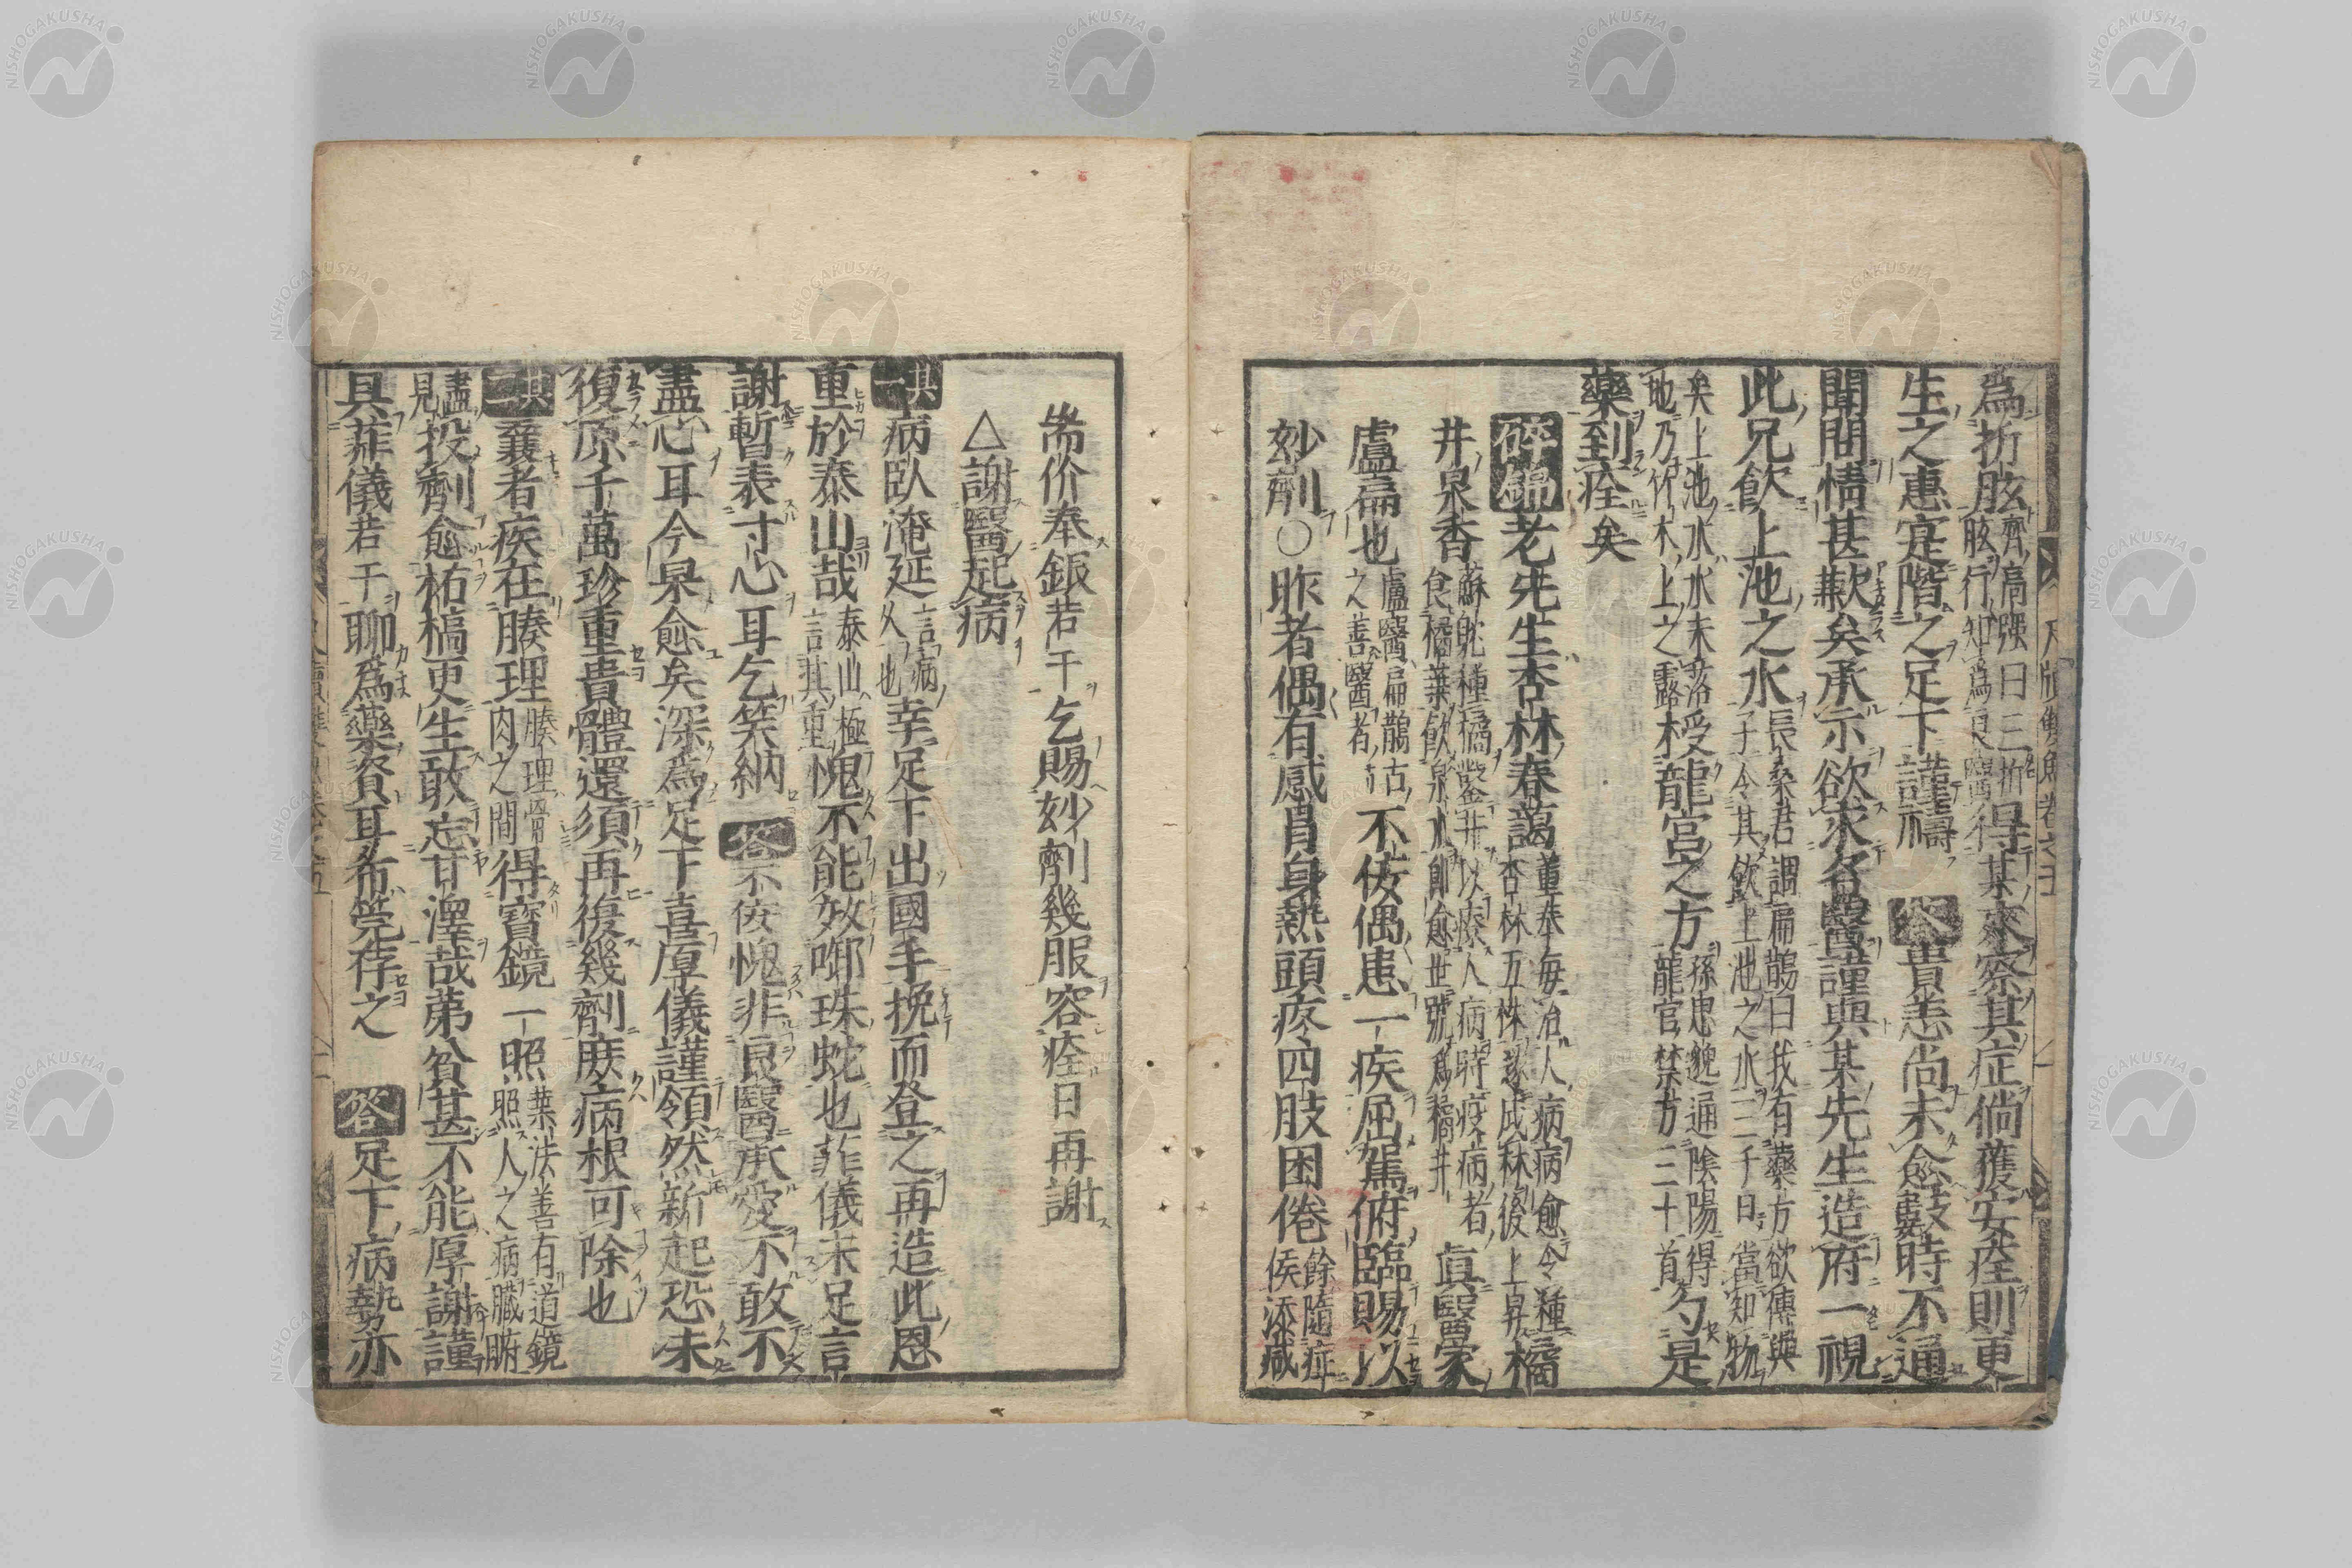 為折肱齊高强曰三折肱行知為良醫得某來察其症倘獲安痊則更
生之惠寔階之足下謹禱　答貴恙尚未愈數時不通
聞問情甚歉矣承示欲求名醫謹與某先生造府一視
此兄飲上池之水長桑君謂扁鵲曰我有藥方欲傳與子令其飲上池之水三十日當知物
矣上池水水未至地乃竹木上之露授龍宮之方孫思邈通陰陽得龍宮禁方三十首勺是
藥到痊矣
碎錦老先生杏林春藹董奉每治人病病愈令種杏林五株遂成林後上昇橘
井泉香蘇耽種橘鑿井以療人病時疫病者食橘葉飲泉水即愈世號為橘井真醫家
盧扁也盧醫扁鵲古之善醫者不佞偶患一疾屈駕俯臨賜以
妙劑○昨者偶有感冒身熱頭疼四肢困倦餘隨症候添减
耑价奉鈑若干乞賜妙劑幾服容痊日再謝
△謝醫起病
其一病臥淹延言病久也幸足下出國手挽而登之再造此恩
重於泰山哉泰山極言其重愧不能效啣珠蛇也菲儀未足言
謝暫表寸心耳乞笑納　答不佞愧非良醫承愛不敢不
盡心耳今果愈矣深為足下喜厚儀謹領然新起恐未
復原千萬珍重貴體還須再復幾劑庶病根可除也
其二曩者疾在腠理腠理骨肉之間得寶鏡一照葉法善有道鏡照人之病臟腑
盡見投劑愈枯槁更生敢忘甘澤哉弟貧甚不能厚謝謹
具菲儀若干聊為藥資耳希筦存之　答足下病勢亦
NISHOGAKUSHA